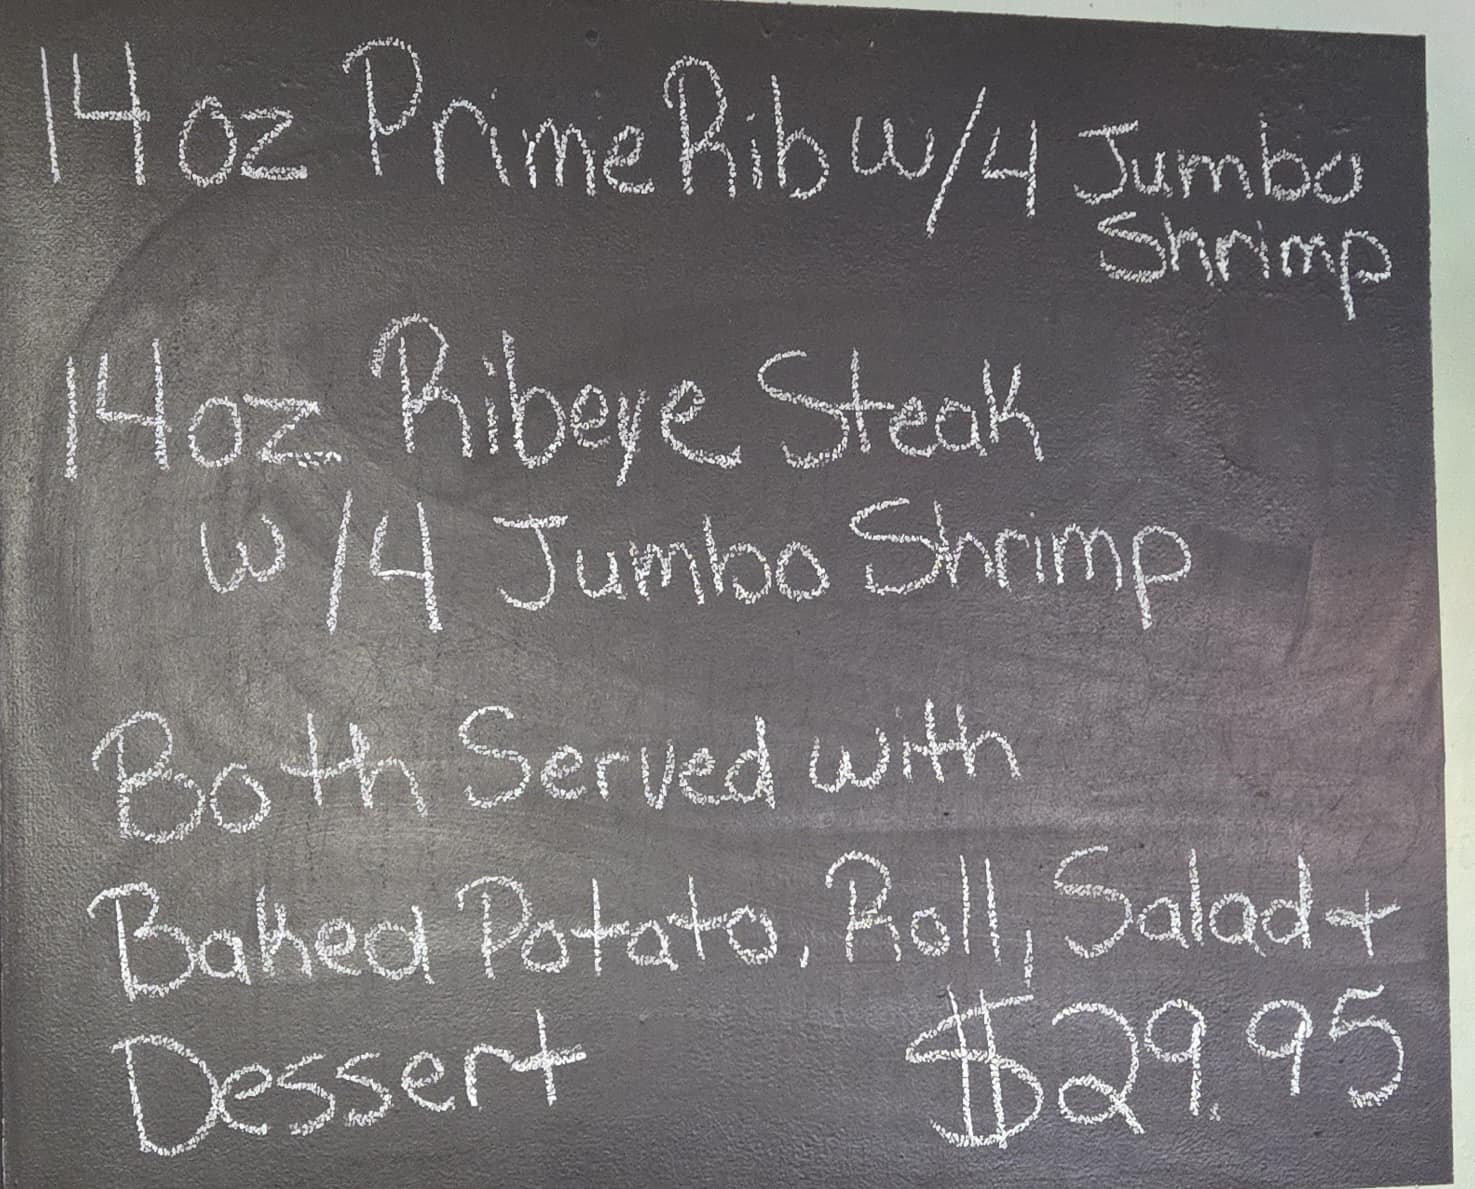 14 oz Prime Rib w/4 Jumbo
Shrimp
14 oz Ribeye Steak
w/4 Jumbo Shrimp
Both Served with
Baked Potato, Roll, Salad +
Dessert $29.95